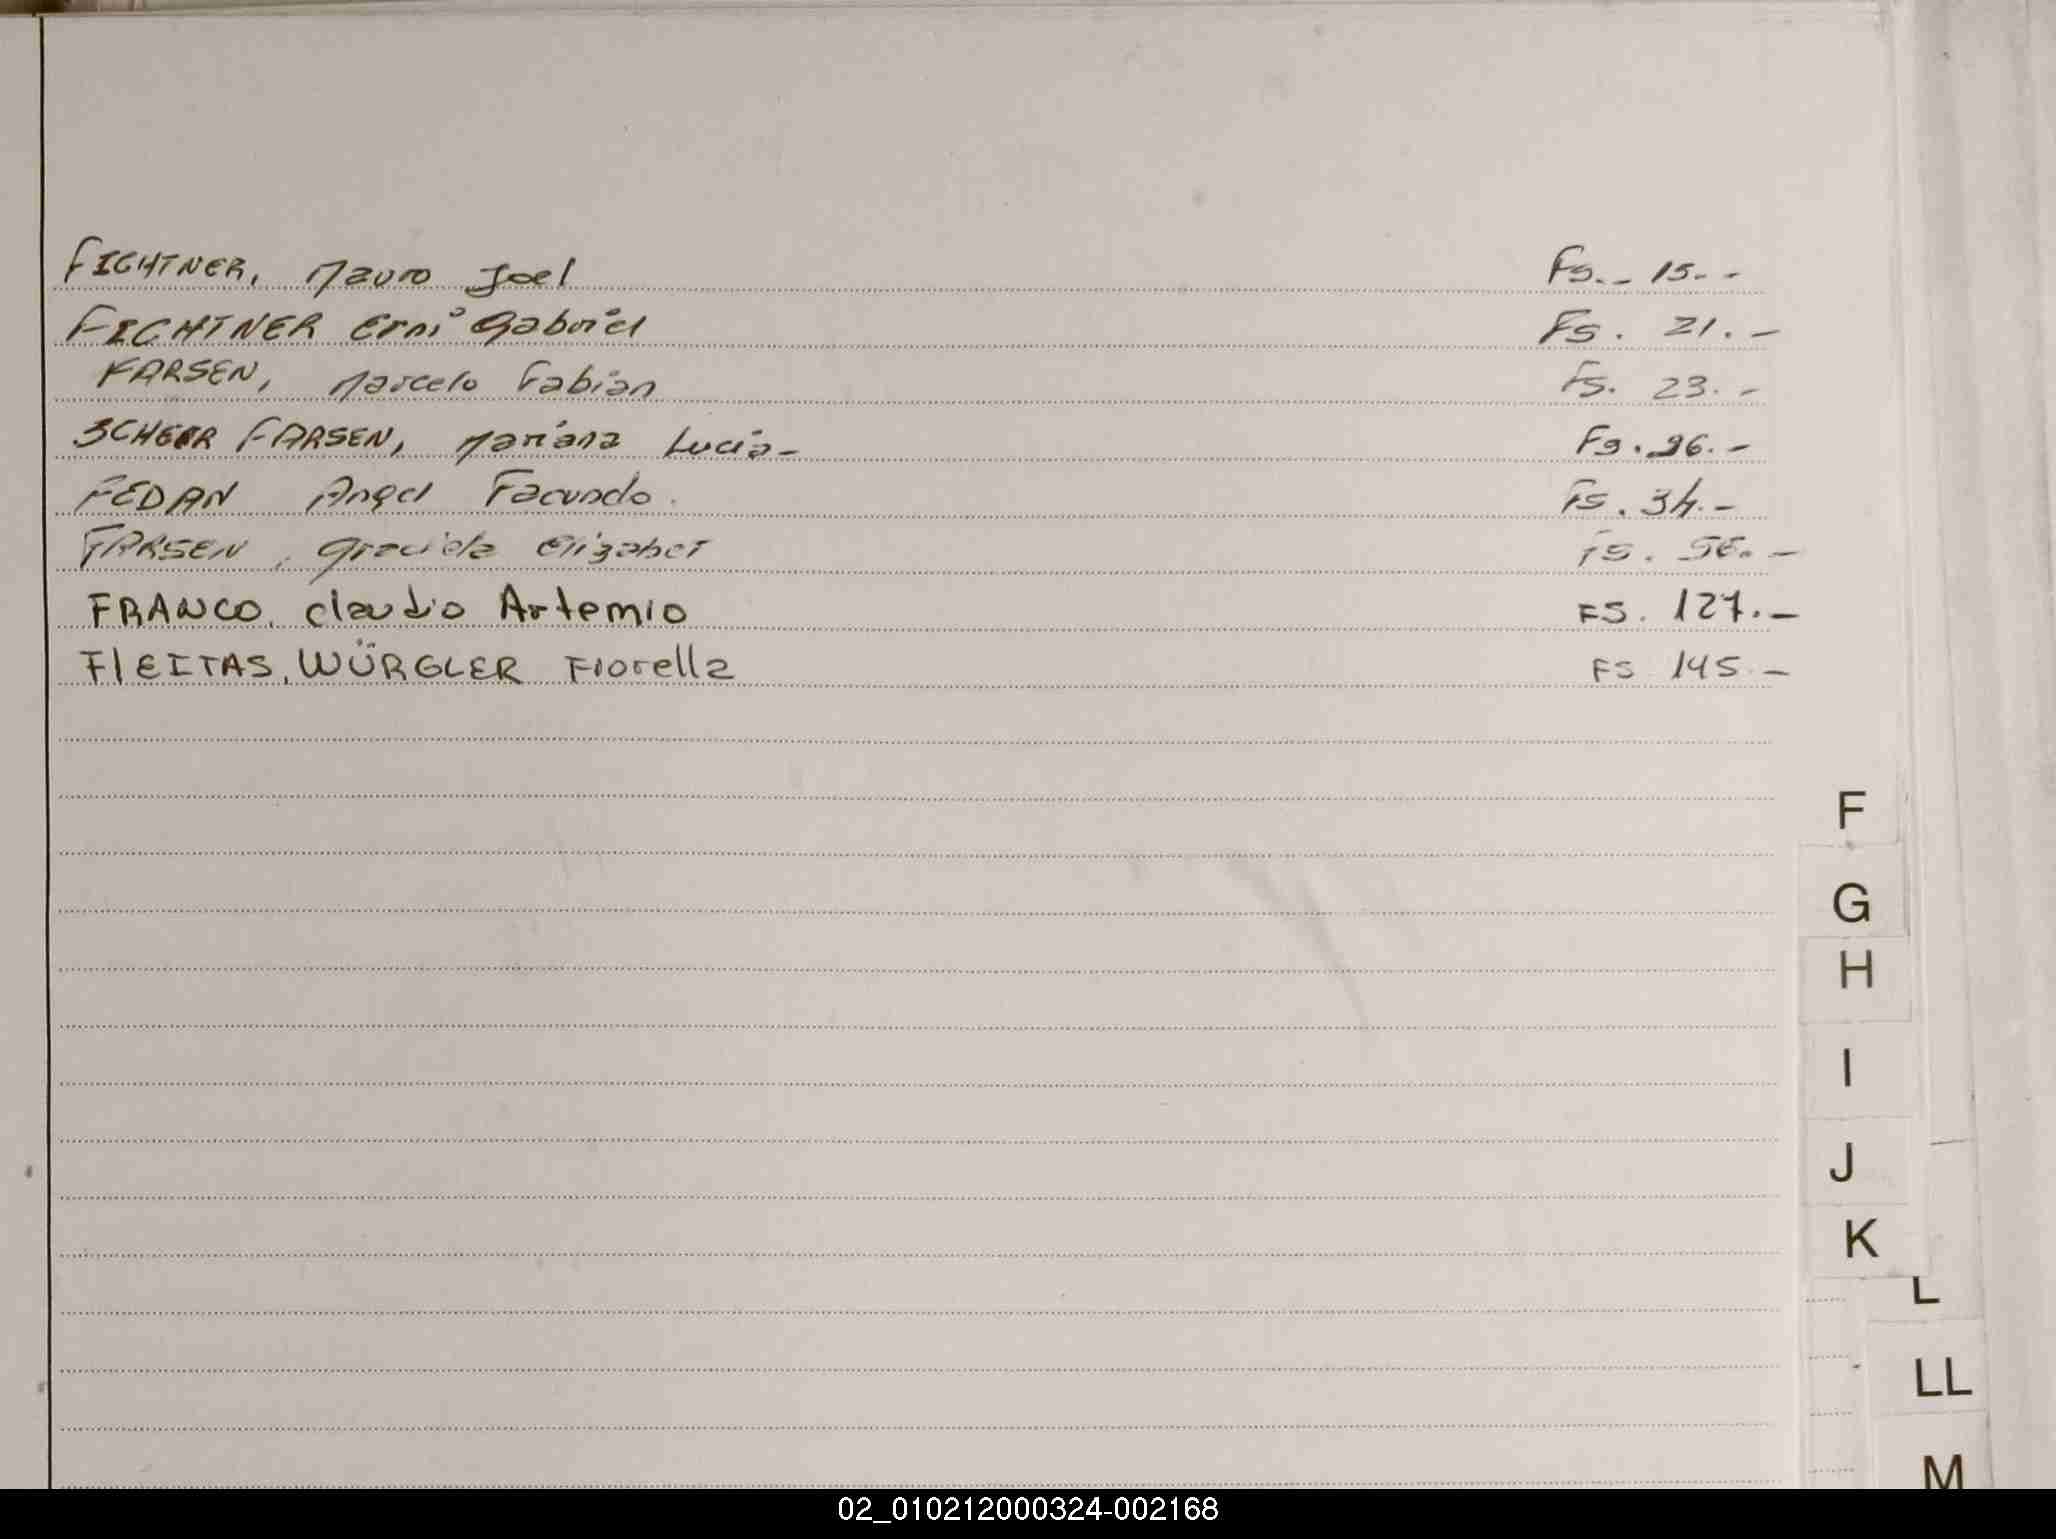 FICHTNER, Mauro Joel Fs. - 15. -
FICHTNER Erni Gabriel Fs. 21. -
FARSEN, Marcelo Fabian Fs. 23. -
SCHEER FARSEN, Mariana Lucia - Fs. 26. -
FEDAN Angel Facundo. Fs. 34. -
FARSEN, Graciela Elizabet Fs. 56. -
FRANCO, Claudio Artemio FS. 127. -
FlEITAS, WÜRGLER Fiorella FS 145. -
F
G
H
I
J
K
L
LL
M
02_010212000324-002168